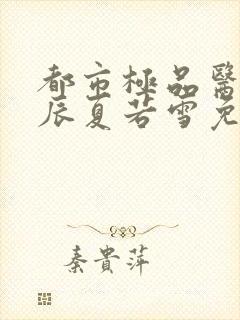 都市極品醫
辰夏若雪免
秦貴萍